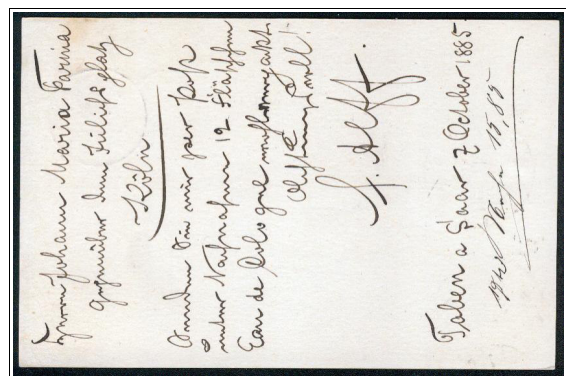 Herrn Johann Maria Farina
gegenüber dem Jülichsplatz
Köln
Senden Sie mir per Post
unter Nachnahme 12 Flaschen
Eau de Cologne
Achtungsvoll!
Taben a Saar 7 October 1885
15,85